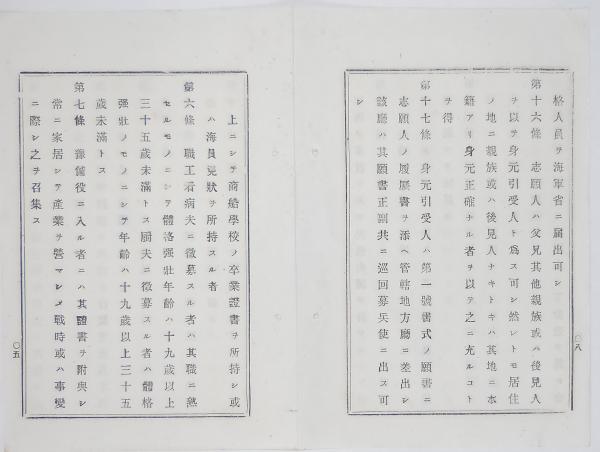 格人員ヲ海軍省ニ届出可シ
第十六條 志願人ハ父兄其他親族或ハ後見人
ヲ以テ身元引受人ト爲ス可シ然レトモ居住
ノ地ニ親族或ハ後見人ナキトキハ其地ニ本
籍アリ身元正確ナル者ヲ以テ之ニ充ルコト
ヲ得
第十七條 身元引受人ハ第一號書式ノ願書ニ
志願人ノ履歷書ヲ添ヘ管轄地方廳ニ差出シ
該廳ハ其願書正副共ニ巡回募兵使ニ出ス可
シ
〇八
上ニシテ商船學校ノ卒業證書ヲ所持シ或
ハ海員免狀ヲ所持スル者
第六條 職工看病夫ニ徵募スル者ハ其職ニ熟
セルモノニシテ體格强壯年齡ハ十九歲以上
三十五歲未滿トス厨夫ニ徵募スル者ハ體格
强壯ノモノニシテ年齡ハ十九歲以上三十五
歲未滿トス
第七條 豫備役ニ入ル者ニハ其證書ヲ附與シ
常ニ家居シテ產業ヲ營マシメ戰時或ハ事變
ニ際シ之ヲ召集ス
〇五